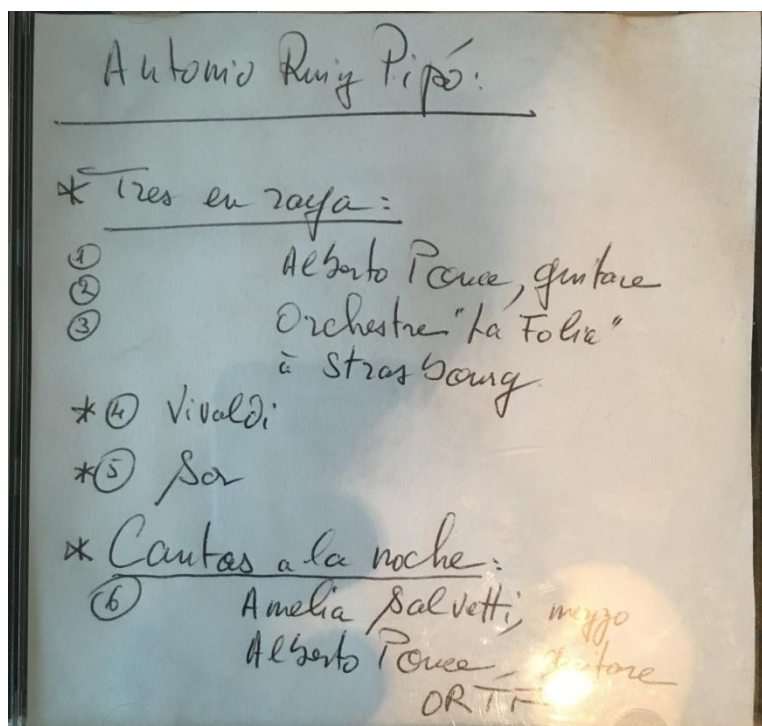 Antonio Ruiz Pipó:
* Tres en raya:
① Alberto Ponce, guitare
② 
③ Orchestre "La Folia"
à Strasbourg
* ④ Vivaldi
* ⑤ Sor
* Cantos a la noche:
⑥ Amelia Salvetti, mezzo
Alberto Ponce, guitare
ORTF